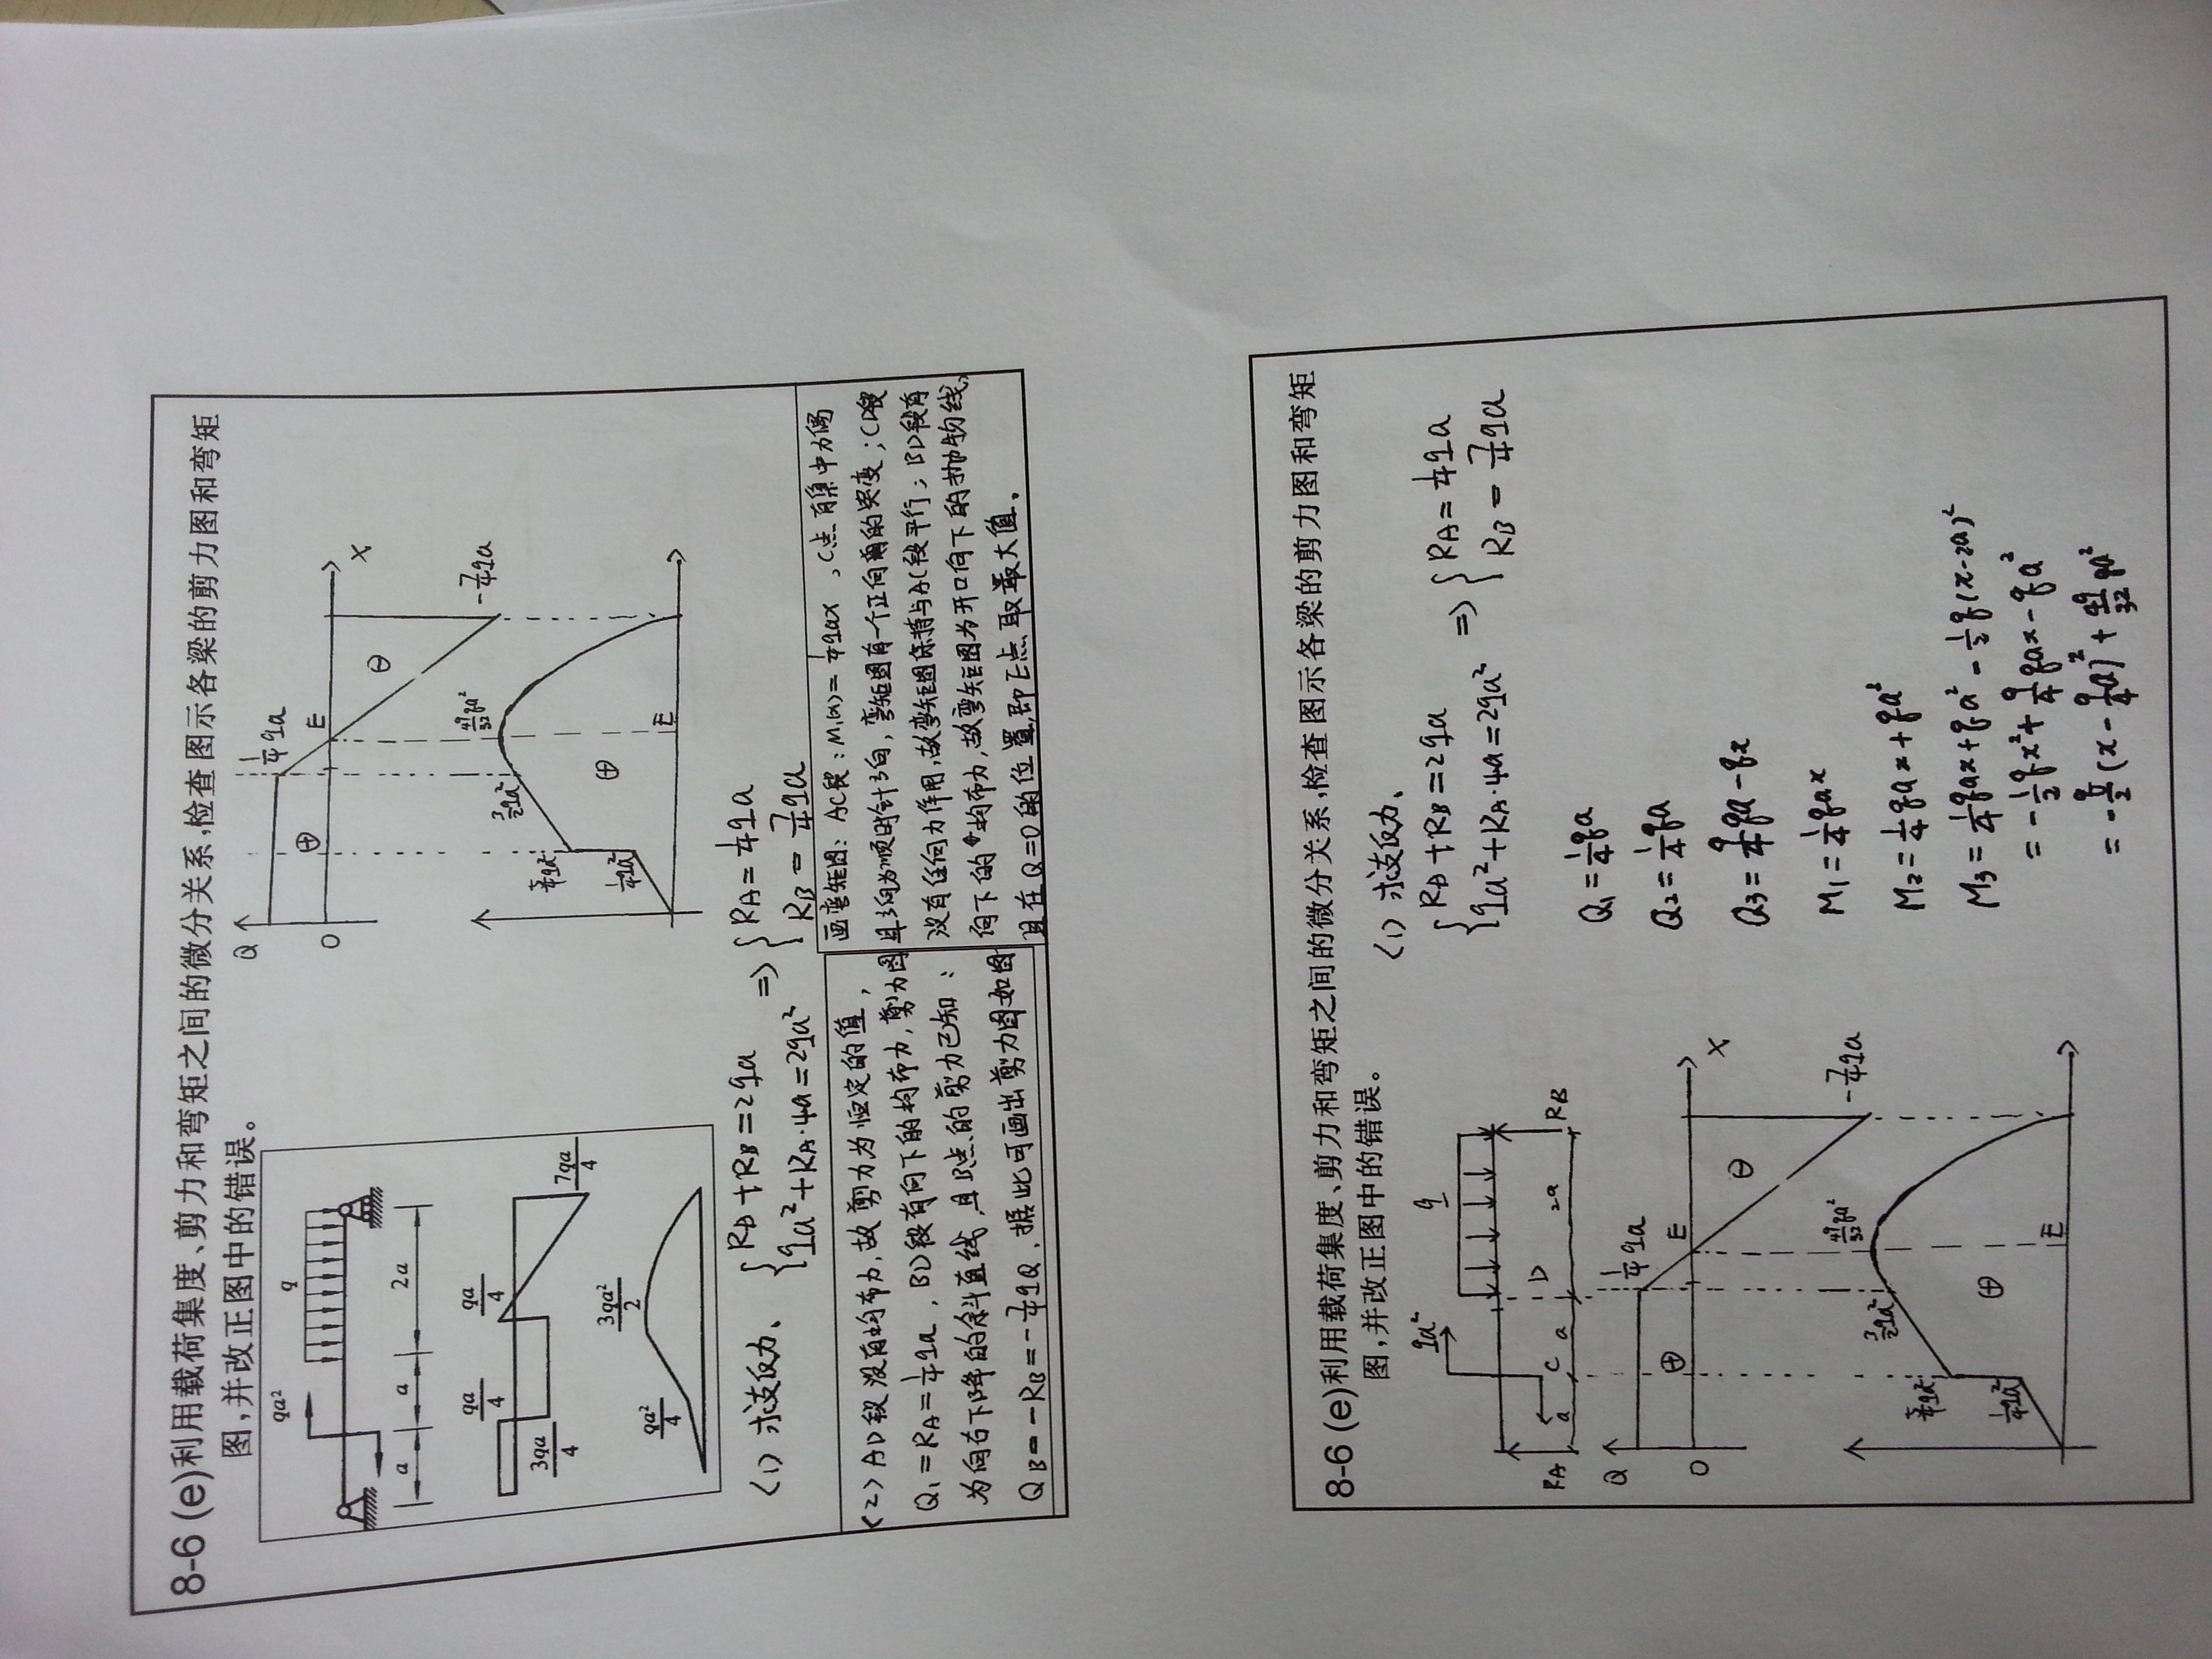 8-6 (e)利用载荷集度、剪力和弯矩之间的微分关系,检查图示各梁的剪力图和弯矩
图,并改正图中的错误。
qa²
q
a
a
2a
qa/4
qa/4
3qa/4
7qa/4
qa²/4
3qa²/2
Q
O
⊕
1/4 qa
E
⊖
X
-7/4 qa
5/4 qa²
1/4 qa²
3/2 qa²
49/32 qa²
⊕
E
(1) 求支反力、
{ RD + RB = 2qa
{ qa² + RA·4a = 2qa²
=> { RA = 1/4 qa
{ RB = 7/4 qa
(2) AD段没有均布力,故剪力为恒定的值,
Q1 = RA = 1/4 qa, BD段有向下的均布力,剪力图
为向右下降的斜直线,且B点的剪力已知:
QB = -RB = -7/4 qa.据此可画出剪力图如图
画弯矩图: AC段: M1(x) = 1/4 qax ,C点有集中力偶
且方向为顺时针方向,弯矩图有一个正向的突变;CD段
没有任何力作用,故弯矩图与AC段平行;BD段有
向下的均布力,故弯矩图为开口向下的抛物线,
且在Q=0的位置,即E点取最大值.
8-6 (e)利用载荷集度、剪力和弯矩之间的微分关系,检查图示各梁的剪力图和弯矩
图,并改正图中的错误。
qa²
q
RA
a
C
a
D
2a
RB
Q
O
⊕
1/4 qa
E
⊖
X
-7/4 qa
5/4 qa²
1/4 qa²
3/2 qa²
49/32 qa²
⊕
E
(1) 求支反力、
{ RD + RB = 2qa
{ qa² + RA·4a = 2qa²
=> { RA = 1/4 qa
{ RB = 7/4 qa
Q1 = 1/4 qa
Q2 = 1/4 qa
Q3 = 9/4 qa - qx
M1 = 1/4 qax
M2 = 1/4 qax + qa²
M3 = 1/4 qax + qa² - 1/2 q(x-2a)²
= -1/2 qx² + 9/4 qax - qa²
= -q/2 (x - 9/4 a)² + 49/32 qa²